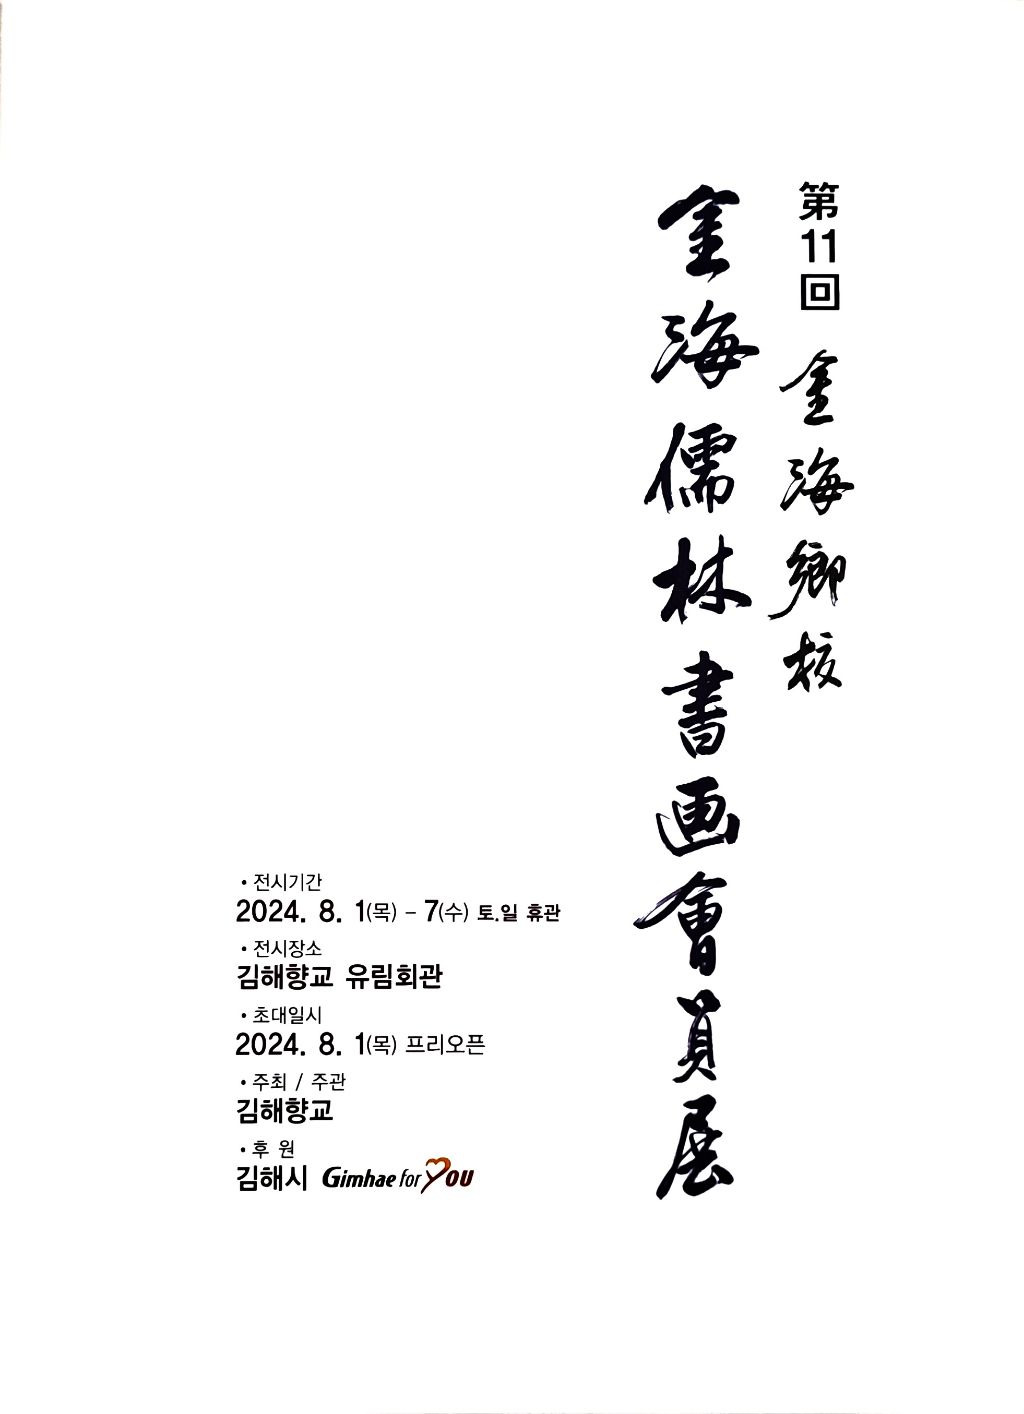 第11回 金海鄕校
金海儒林書画會員展
・전시기간
2024. 8. 1(목) - 7(수) 토.일 휴관
・전시장소
김해향교 유림회관
・초대일시
2024. 8. 1(목) 프리오픈
・주최 / 주관
김해향교
・후 원
김해시 Gimhae for You